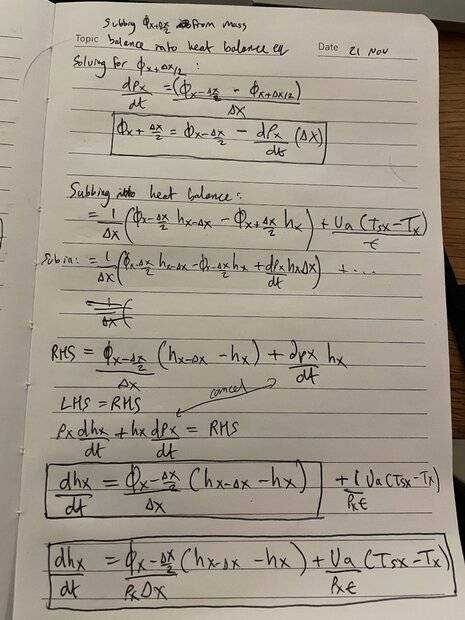 Subbing ϕx+Δx/2 from mass
Topic balance into heat balance eq Date 21 Nov
Solving for ϕx+Δx/2 :
dρx/dt = (ϕx-Δx/2 - ϕx+Δx/2)/Δx
ϕx+Δx/2 = ϕx-Δx/2 - dρx/dt (Δx)
Subbing into heat balance:
= 1/Δx (ϕx-Δx/2 hx-Δx - ϕx+Δx/2 hx) + Ua (Tsx-Tx)/ε
Sub in: = 1/Δx (ϕx-Δx/2 hx-Δx - ϕx-Δx/2 hx + dρx/dt hxΔx) + ...
= 1/Δx (
RHS = ϕx-Δx/2 /Δx (hx-Δx - hx) + dρx/dt hx
cancel
LHS = RHS
ρx dhx/dt + hx dρx/dt = RHS
dhx/dt = ϕx-Δx/2 /Δx (hx-Δx - hx) + 1/ρxε Ua (Tsx-Tx)
dhx/dt = ϕx-Δx/2 /ρxΔx (hx-Δx - hx) + Ua/ρxε (Tsx-Tx)